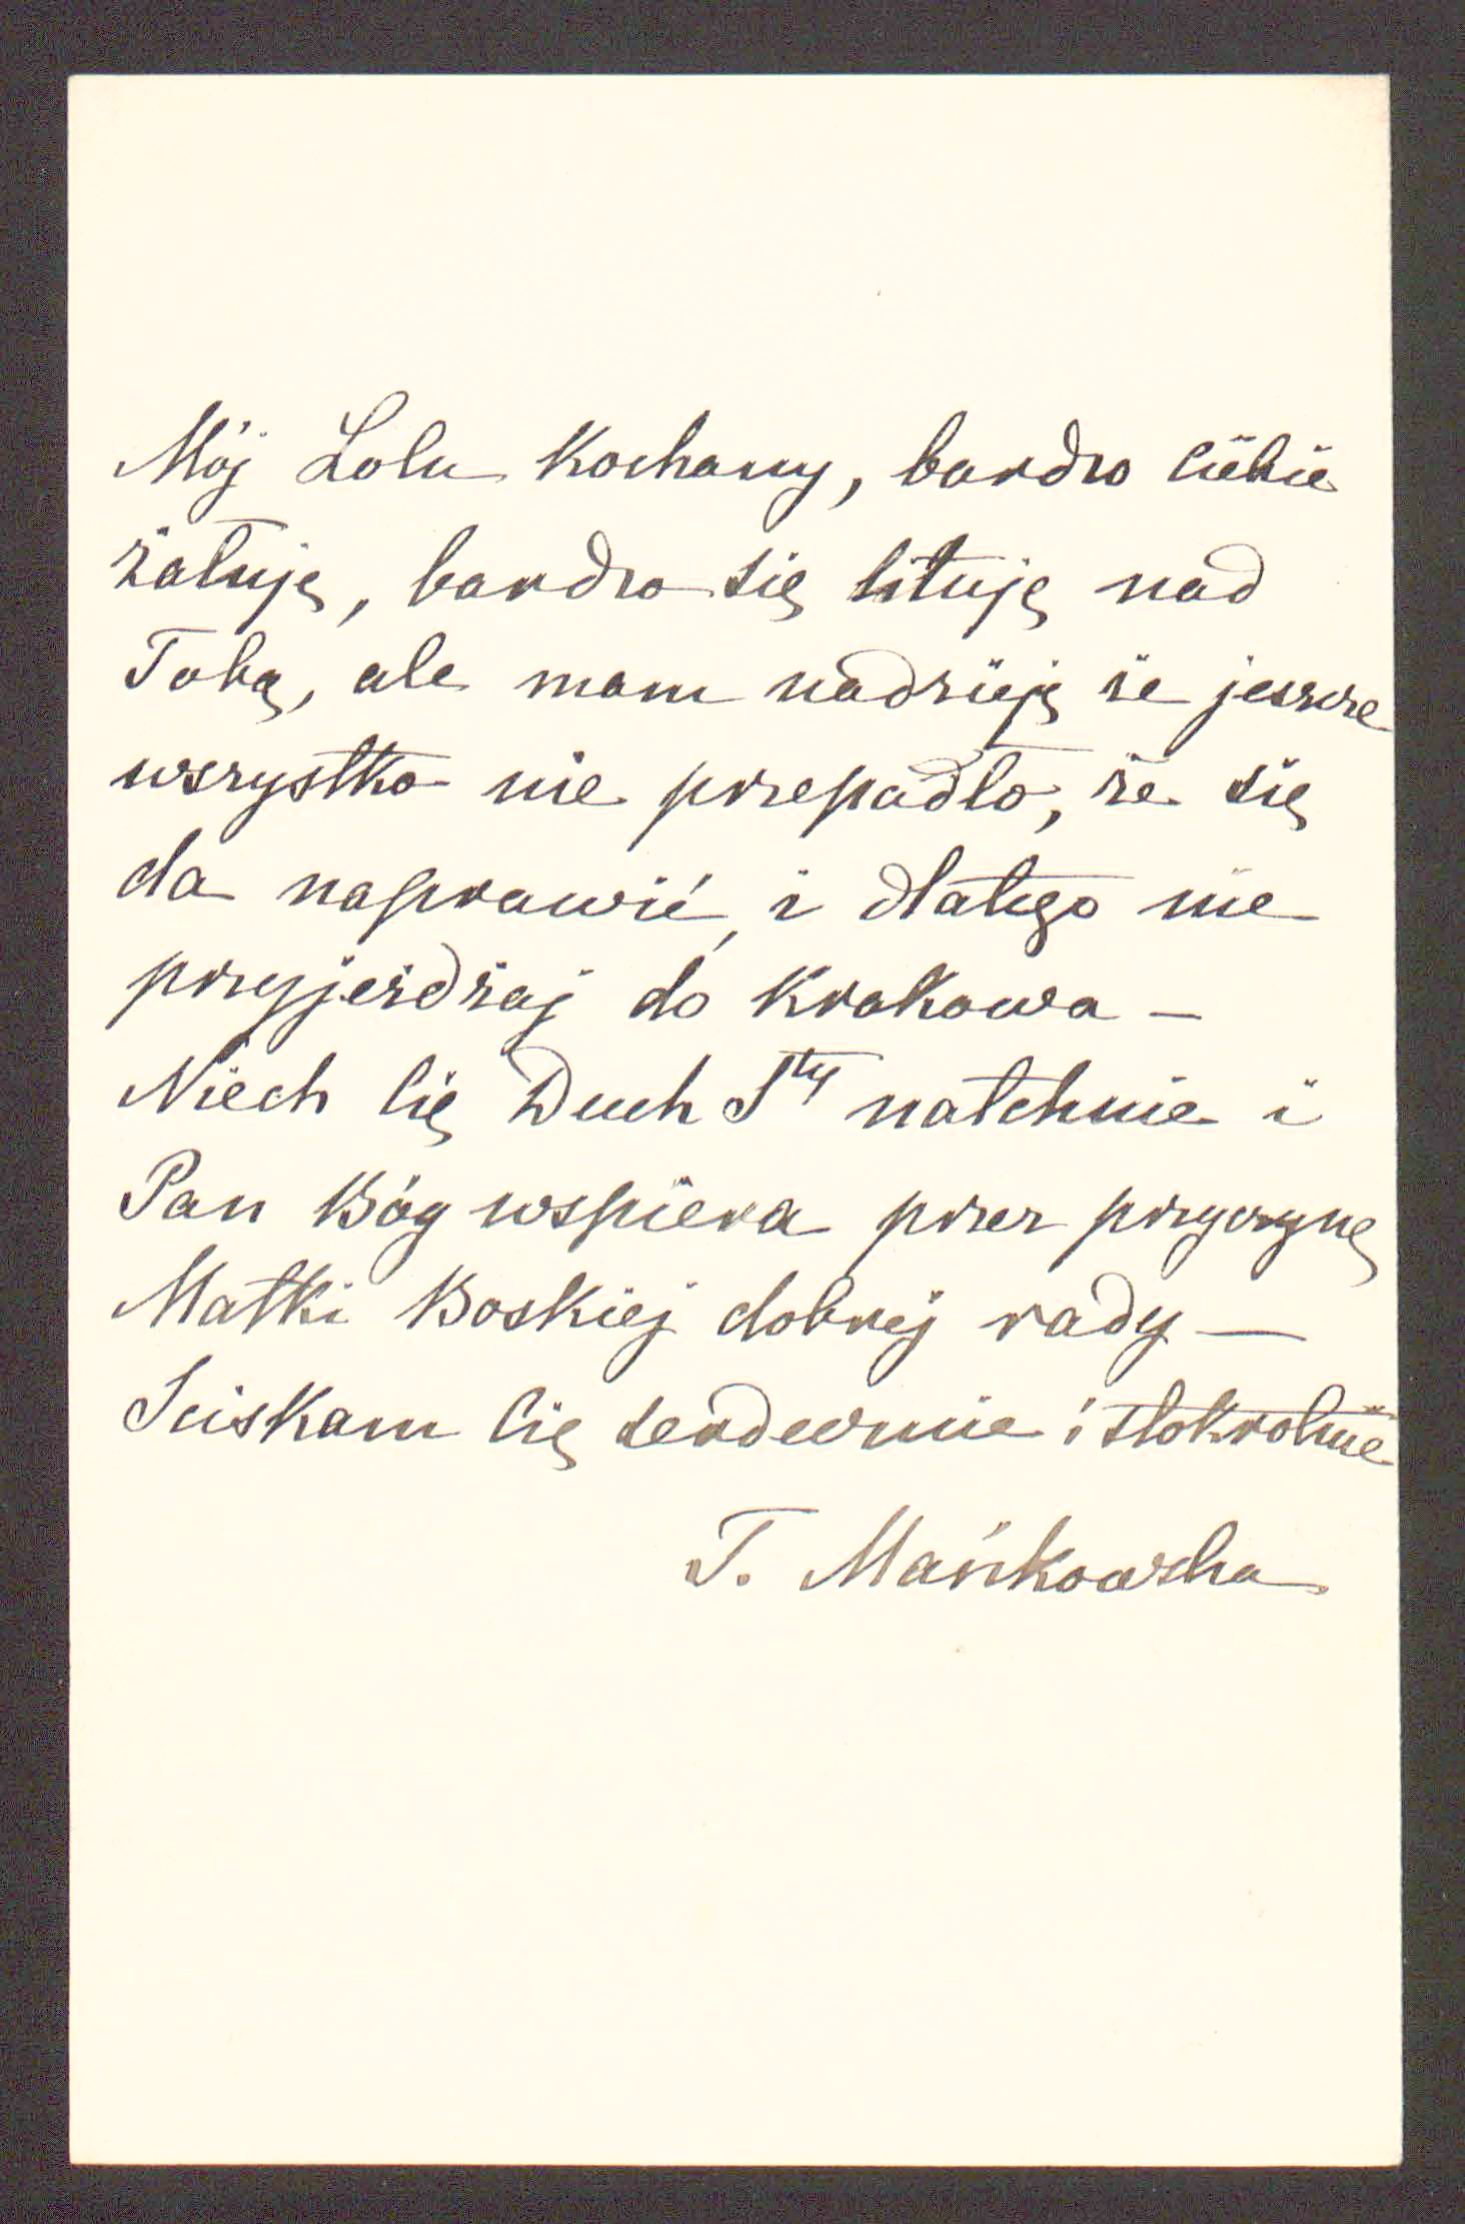 Mój Lolu Kochany, bardzo Ciebie
żałuję, bardzo się lituję nad
Tobą, ale mam nadzieję że jeszcze
wszystko nie przepadło, że się
da naprawić, i dlatego nie
przyjeżdżaj do Krakowa –
Niech Cię Duch Sty natchnie i
Pan Bóg wspiera przez przyczynę
Matki Boskiej dobrej rady –
Sciskam Cię serdecznie i stokrotnie
T. Mańkowska